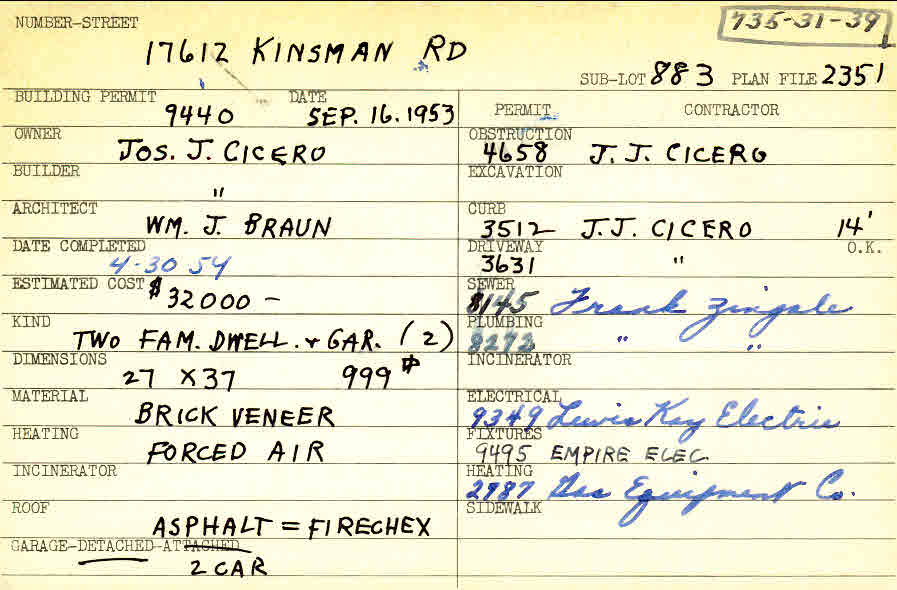 735-31-39
NUMBER-STREET
17612 KINSMAN RD
SUB-LOT 883 PLAN FILE 2351
BUILDING PERMIT DATE
9440 SEP. 16. 1953
OWNER
JOS. J. CICERO
BUILDER
"
ARCHITECT
WM. J. BRAUN
DATE COMPLETED
4-30 54
ESTIMATED COST $32000 -
KIND
TWO FAM. DWELL. & GAR. (2)
DIMENSIONS
27 X 37 999 #
MATERIAL
BRICK VENEER
HEATING
FORCED AIR
INCINERATOR
ROOF
ASPHALT = FIRECHEX
GARAGE-DETACHED-ATTACHED
2 CAR
PERMIT CONTRACTOR
OBSTRUCTION
4658 J. J. CICERO
EXCAVATION
CURB
3512 J. J. CICERO 14'
DRIVEWAY O.K.
3631 "
SEWER
8145 Frank Zingale
PLUMBING
8272 " "
INCINERATOR
ELECTRICAL
9349 Lewis Kay Electric
FIXTURES
9495 EMPIRE ELEC.
HEATING
2987 Gas Equipment Co.
SIDEWALK